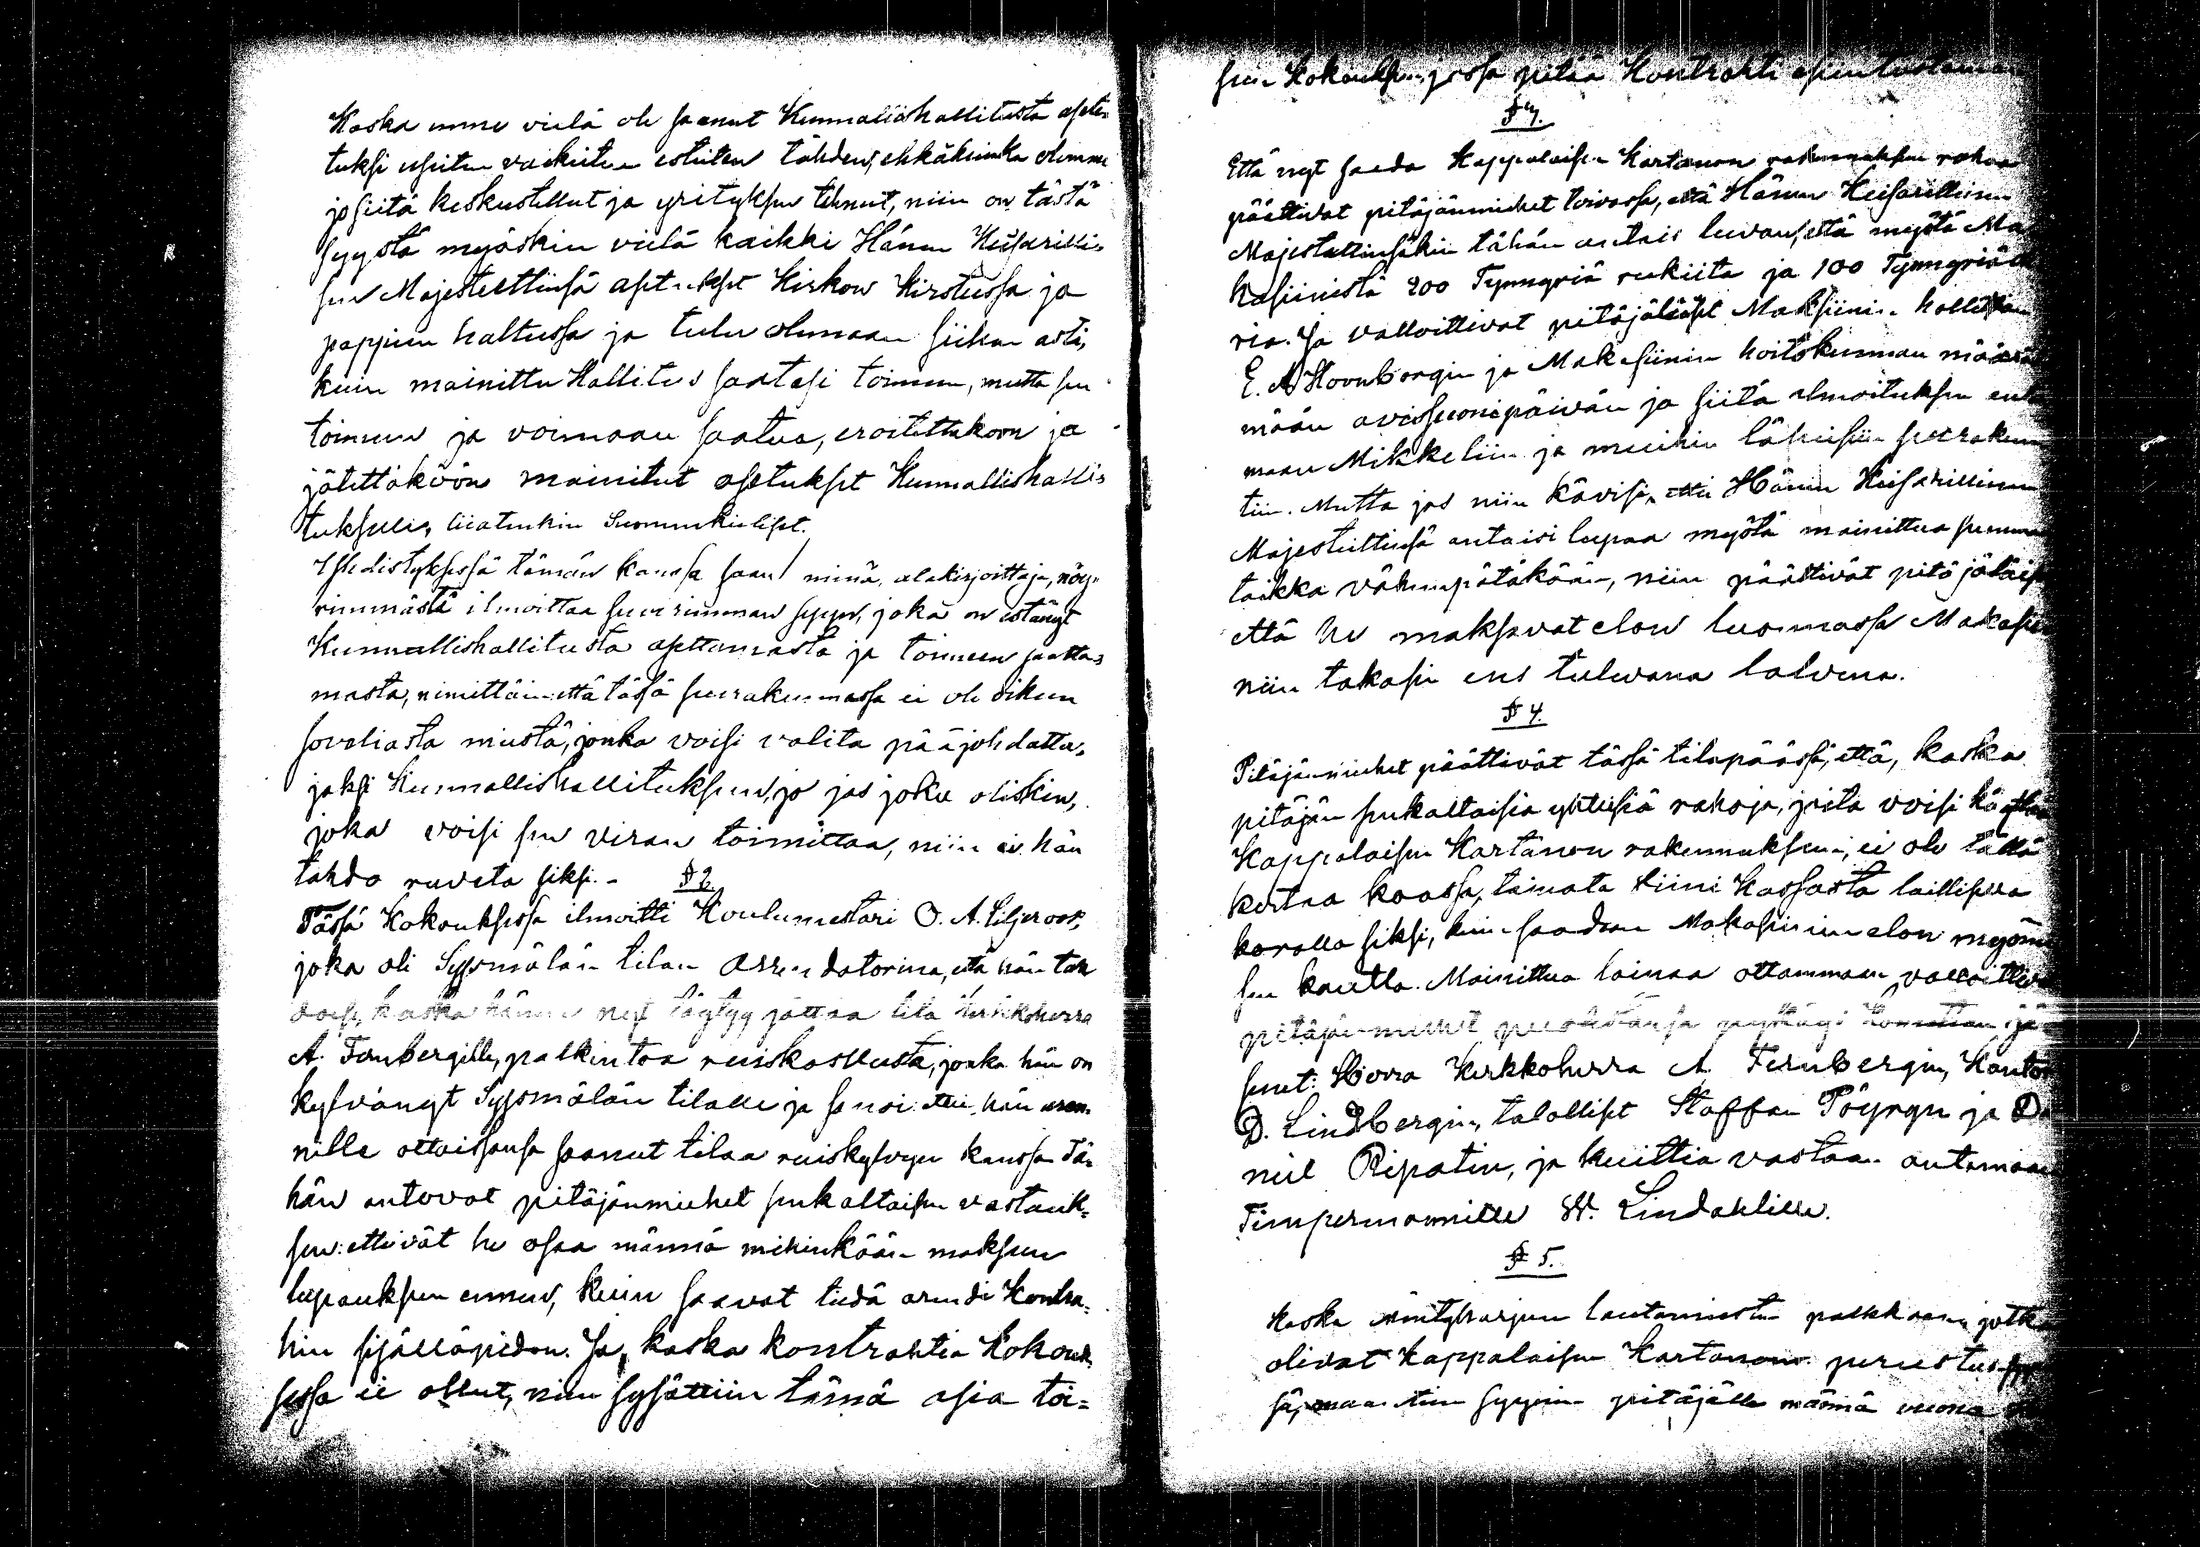 Koska emme vielä ole saanut Kunnallishallitusta asete=
tuksi usiitten vaikiitten estuiten tähden, ehkäkuinka olemme
jo siitä keskustellut ja yrityksen tehnut, niin on tästä
syystä myöskin vielä kaikki Hänen Keisarilli=
sen Majesteettiinsä asetukset Kirkon Kirstussa ja
pappien haltussa ja tulee olemaan siihen asti,
kuin mainittu Hallitus saatasi toimeen, mutta sen
toimeen ja voimaan saatua, eroitettakoon ja
jätettäköön mainitut asetukset Kunnallishalli=
tukselle, liiatenkin Suomenkieliset.
Yhdistyksessä tämän kanssa saan minä, alakirjoittaja, nöy=
rimmästä ilmoittaa suurimman syyn, joka on estänyt
Kunnallishallitusta asettamasta ja toimeen saatta=
masta, nimittäin että tässä seurakunnassa ei ole oikeen
sovaliasta miestä, jonka voisi valita pääjohdatta=
jaksi Kunnallishallitukseen, jo jos joku oliskin,
joka voisi sen viran toimittaa, niin ei hän
tahdo ruveta siksi. -
§ 2.
Tässä Kokouksessa ilmoitti Koulumestari O. A. Liljeroos,
joka oli Syssmälän tilan Arrendatorina, että hän tah
doisi, koska hänen nyt täytyy jättää tila Kirkkoherra
A. Fernbergille, palkintoa ruiskasvusta, jonka hän on
kylvänyt Syssmälän tilalle ja sanoi ettei hän aren=
nille ottaissansa saanut tilaa ruiskylvyn kanssa. Tä=
hän antovat pitäjänmiehet senkaltaisen vastauk=
sen: ettivät he osaa männä mihinkään maksun
lupauksen ennen, kuin saavat tiedä arendi Kontra=
hin sisälläpidon. Ja, koska kontrahtia Kokouk
sessa ei ollut, niin sysättiin tämä asia toi=
seen Kokouksen, jossa pitää Kontrahti esiin tuotaman
§ 3.
Että nyt saada Kappalaisen Kartanon rakennuksen rahaa
päättivat pitäjänmiehet toivossa, että Hänen Keisarillinen
Majesteettinsäkin tähän antais luvan, että myötä Ma
kasiinistä 200 Tynnyriä rukiita ja 100 Tynnyriä
ria. Ja valtoittivat pitäjäläiset Makasiinin
E. A. Hornborgin ja Makasiinin hoitokunnan määrä
mään avissuonipäivän ja siitä ilmoituksen
maan Mikkeliin ja muihin lähisiin seurakun
tiin. Mutta jos niin kävisi, ettei Hänen Keisarillinen
Majesteettinsä antaisi lupaa myötä mainittua summaa
taikka vähempätäkään, niin päättivät pitäjäläis
että he maksavat elon luomassa Makasii
niin takasin ens tulevana talvena.
§ 4.
Pitäjänmiehet päättivät tässä tilapäässä, että, koska
pitäjän senkaltaisia yhteisiä rahoja, joita voisi käyttää
Kappalaisen Kartanon rakennukseen, ei ole tällä
kertaa kaassa, lainata Viini Kassasta laillisella
koralla siksi, kuin saadaan Makasiinin elon myömi
sen kautta. Mainittua lainaa ottammaan valtoittivat
pitäjänmiehet puoldestansa
senet: Herra Kirkkoherra A. Fernbergin, Kantor
D. Lindbergin, talolliset Staffan Pöyryn ja Da
niel Ripatin, ja kuittia vastaan antamaan
Timpermannille W. Lindahlille.
§ 5.
Koska Mäntyharjun lautamiesten palkkaan, jotka
olivat Kappalaisen Kartanon perustus
sä, pitäjälle männä vuona